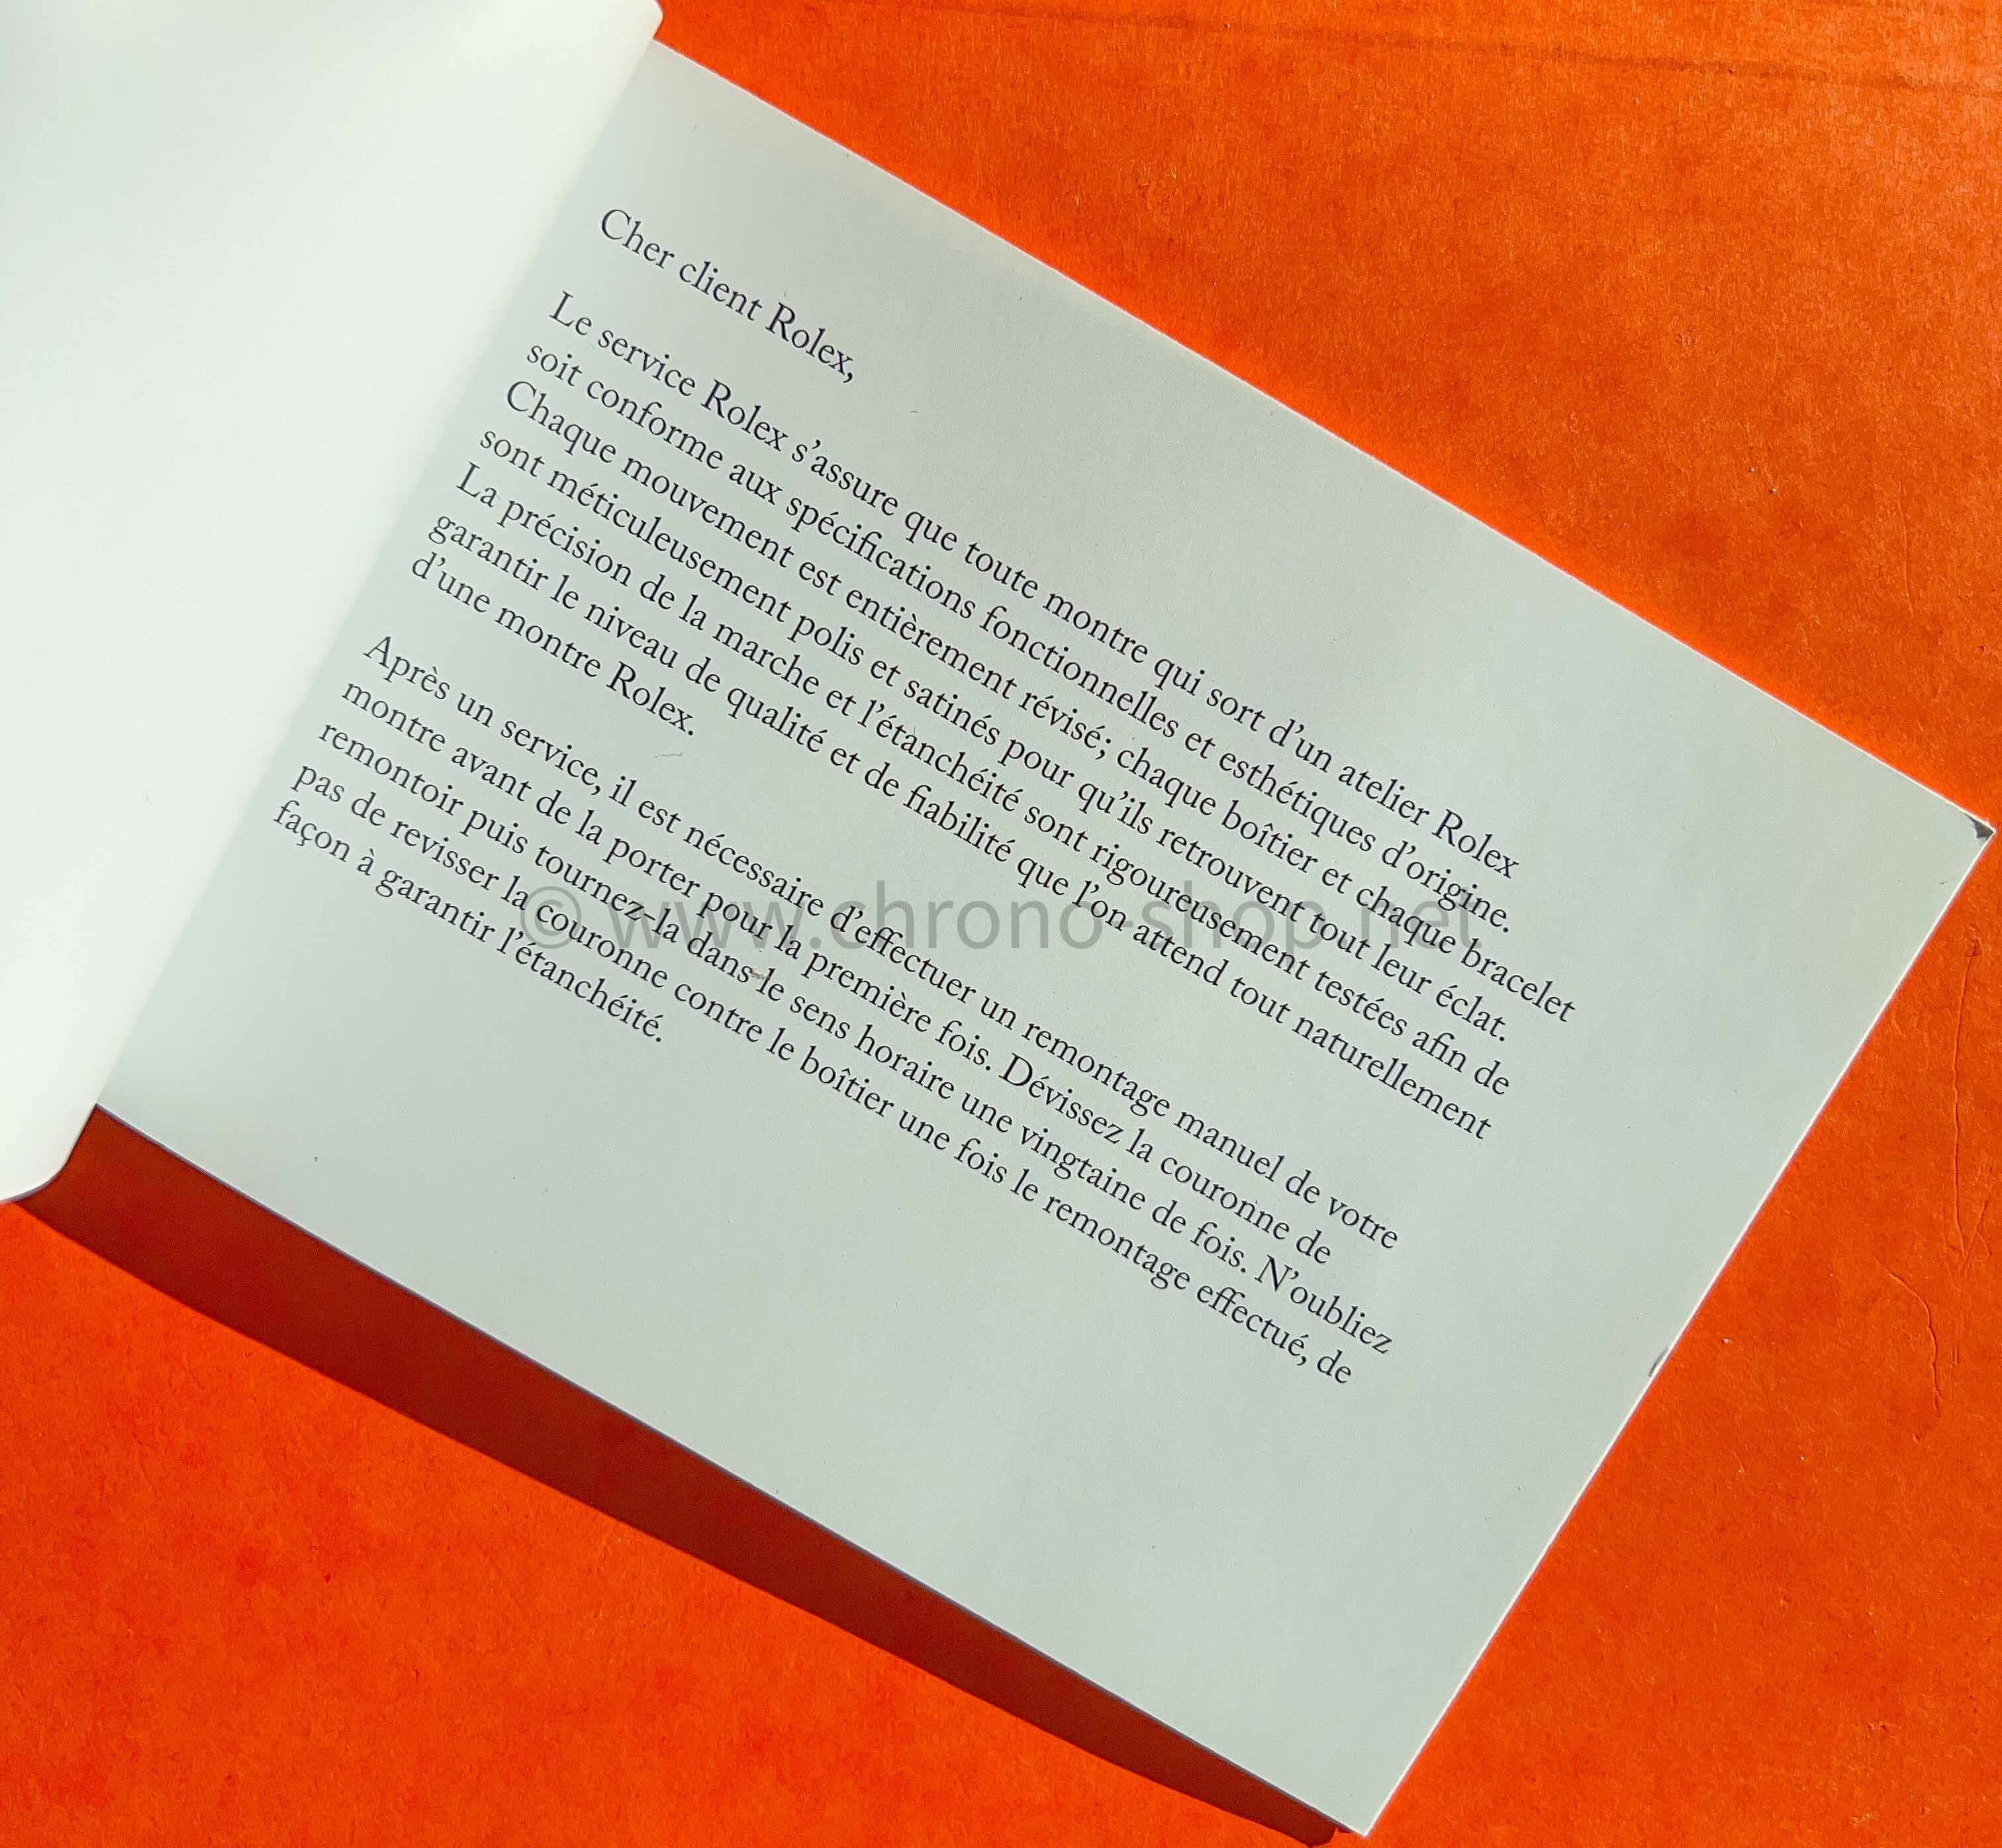 Cher client Rolex,
Le service Rolex s’assure que toute montre qui sort d’un atelier Rolex
soit conforme aux spécifications fonctionnelles et esthétiques d’origine.
Chaque mouvement est entièrement révisé; chaque boîtier et chaque bracelet
sont méticuleusement polis et satinés pour qu’ils retrouvent tout leur éclat.
La précision de la marche et l’étanchéité sont rigoureusement testées afin de
garantir le niveau de qualité et de fiabilité que l’on attend tout naturellement
d’une montre Rolex.
Après un service, il est nécessaire d’effectuer un remontage manuel de votre
montre avant de la porter pour la première fois. Dévissez la couronne de
remontoir puis tournez-la dans le sens horaire une vingtaine de fois. N’oubliez
pas de revisser la couronne contre le boîtier une fois le remontage effectué, de
façon à garantir l’étanchéité.
© www.chrono-shop.net